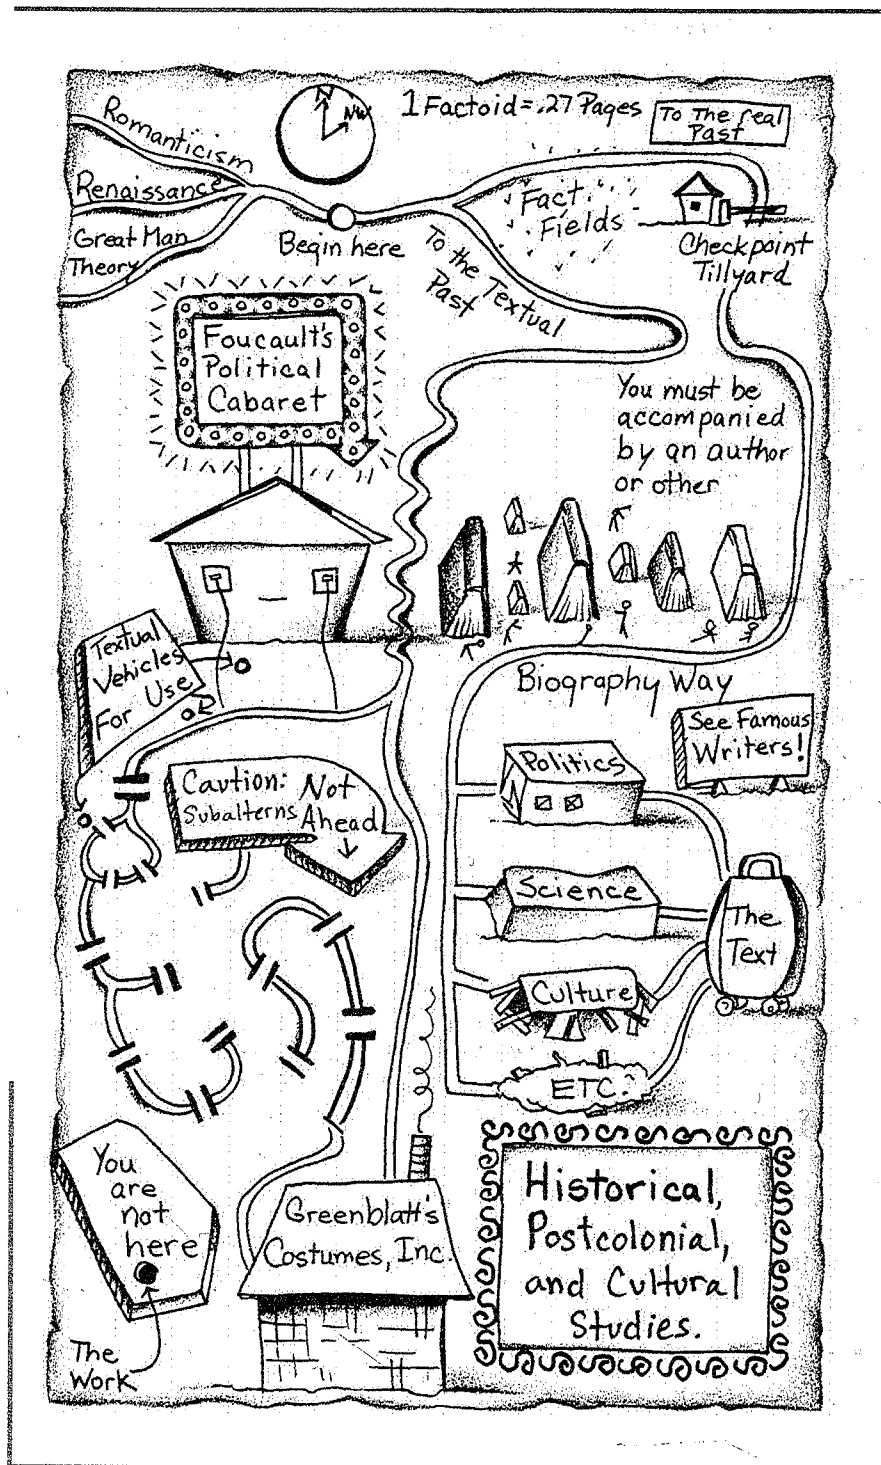 Romanticism
Renaissance
Great Man
Theory
N
NW
1 Factoid = .27 Pages
To The real
Past
Begin here
To the Textual
Past
Fact
Fields
Checkpoint
Tillyard
Foucault's
Political
Cabaret
You must be
accompanied
by an author
or other
Textual
Vehicles
For Use
Biography Way
See Famous
Writers!
Caution:
Subalterns
Not
Ahead
Politics
Science
Culture
ETC.
The
Text
You
are
not
here
The
Work
Greenblatt's
Costumes, Inc.
Historical,
Postcolonial,
and Cultural
Studies.